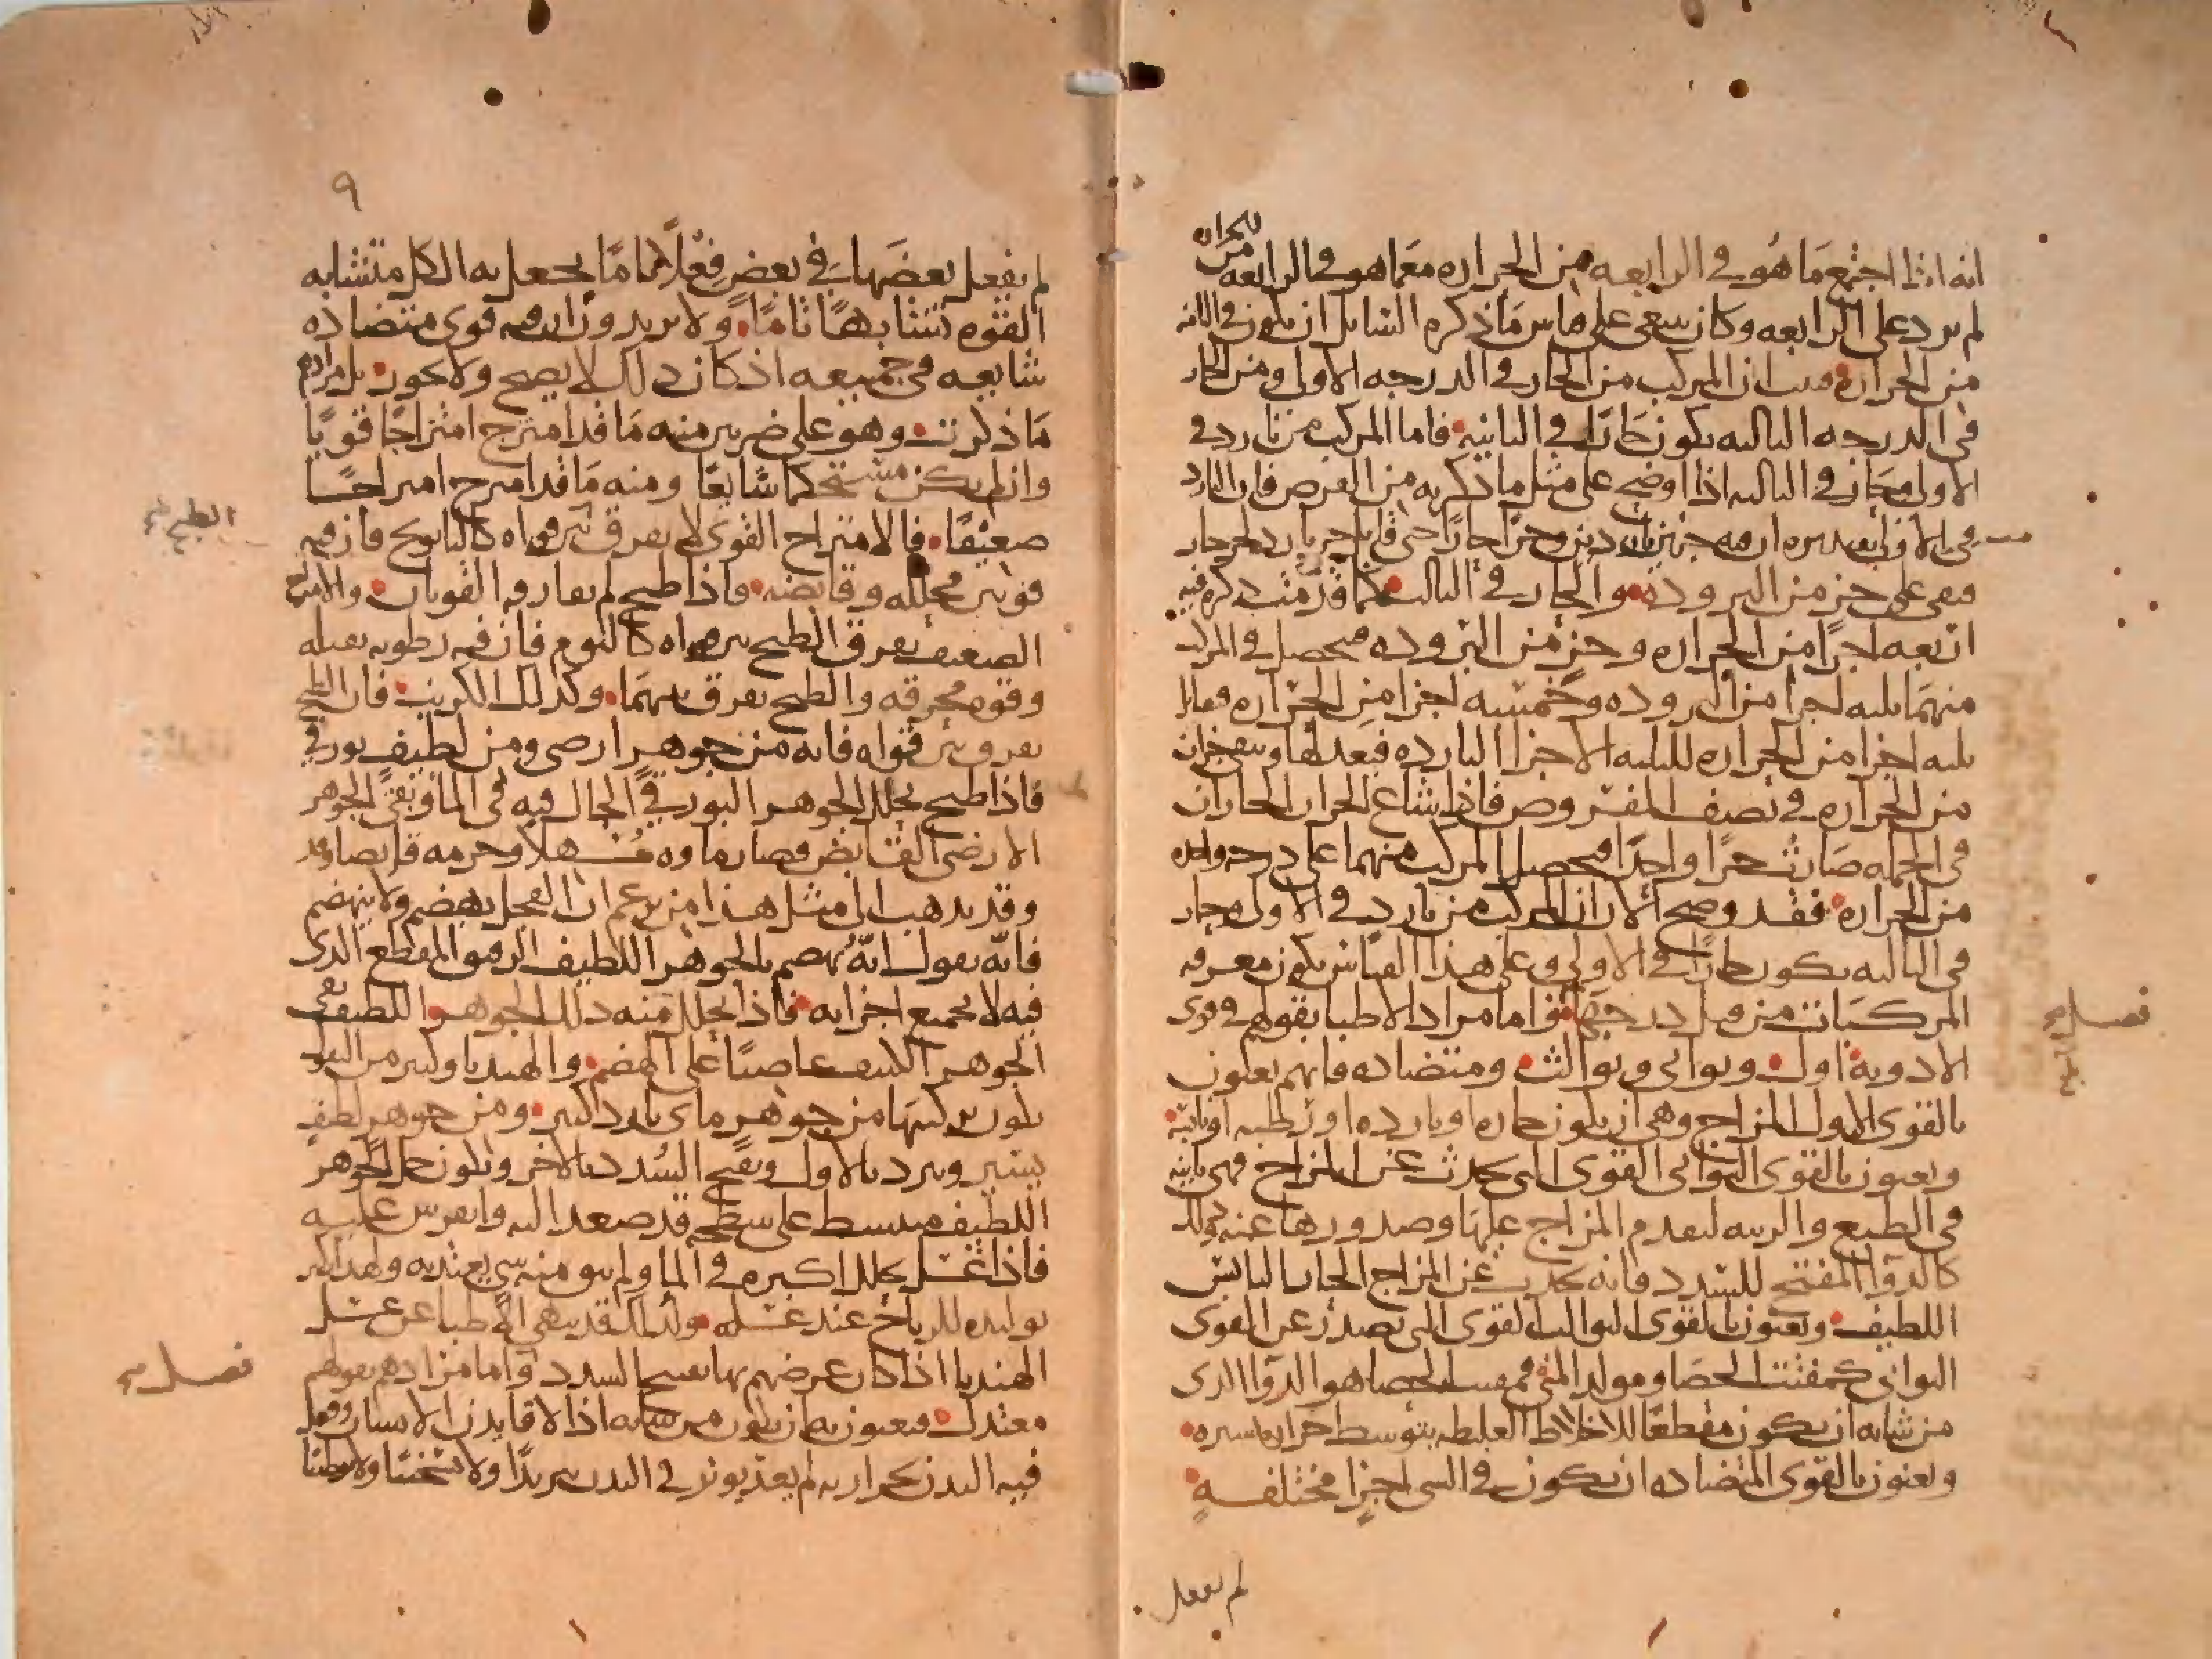 انه اذا اجتمع ما هو في الرابعه من الحراره مع ما هو في الرابعه من الحراره
لم يزد على الرابعه وكان ينبغي على قياس ما ذكره السايل ان يكون في الثامنه
من الحراره فبان ان المركب من الحار في الدرجه الاولى ومن الحار
في الدرجه الثالثه يكون حارا في الثانيه فاما المركب من بارد في
الاولى وحار في الثالثه اذا اوضح على مثل ما ذكر به من الفرض فان البارد
في الاولى فيه جزين باردين وجزا حارا
فبقي على جز من البروده والحار في الثالث كما قدمت ذكره فيه
اربعه اجزا من الحراره وجز من البروده فيحصل في المركب
منهما ثلثه اجزا من البروده وخمسه اجزا من الحراره فقابل
ثلثه اجزا من الحراره للثلثه الاجزا البارده فيعدلها ويبقى جزان
من الحراره في نصف المفروض فاذا شاع الجزان الحاران
في الجمله صارت جزا واحدا فيحصل المركب منهما على درجه واحده
من الحراره فقد وضح الان ان المركب من بارد في الاولى وحار
في الثالثه يكون حارا في الاولى وعلى هذا القياس يكون معرفه
المركبات من قبل درجتها واما مراد الاطبا بقولهم في قوى
الادويه اول وثواني وثوالث ومتضاده فانهم يعنون
بالقوى الاول المزاج وهي ان يكون حاره او بارده او رطبه او يابسه
ويعنون بالقوى الثواني القوى التي تحدث عن المزاج فهي ثانيه
في الطبع والرتبه لتقدم المزاج عليها وصدورها عنه وذلك
كالدوا المفتح للسدد فانه يحدث عن المزاج الحار اليابس
اللطيف ويعنون بالقوى الثوالث القوى التي تصدر عن القوى
الثواني كمفتت الحصا ومولد المني فمفتت الحصا هو الدوا الذي
من شانه ان يكون مقطعا للاخلاط الغليظه بتوسط حراره يسيره
ويعنون بالقوى المتضاده ان يكون في الشي اجزا مختلفه
لم يفعل
فصل
٩
لم يفعل بعضها في بعض فعلا تاما يجعل به الكل متشابه
القوه تشابها تاما ولا يريدون ان فيه قوى متضاده
شايعه في جميعه اذ كان ذلك لا يصح ولا يكون بل مرادهم
ما ذكرت وهو على ضربين منه ما قد امتزج امتزاجا قويا
وان لم يكن مستحكما شايعا ومنه ما قد امتزج امتزاجا
ضعيفا فالامتزاج القوي لا يفرق بين قواه كالبابونج فان فيه
قوتين محلله وقابضه واذا طبخ لم يفارقه القوتان والامتزاج
الضعيف يفرق الطبخ بين قواه كالثوم فان فيه رطوبه ثقيله
وقوه محرقه والطبخ يفرق بينهما وكذلك الكرنب فان الطبخ
يفرق بين قواه فانه من جوهر ارضي ومن لطيف بورقي
فاذا طبخ تحلل الجوهر البورقي الحال فيه في الما وبقي الجوهر
الارضي القابض فصار ماوه مسهلا وجرمه قابضا وقد
وقد يذهب الى مثل هذا من يزعم ان الفجل يهضم ولا ينهضم
فانه يقول انه يهضم بالجوهر اللطيف الرقيق المقطع الذي
فيه لا بجميع اجزايه فاذا تحلل منه ذلك الجوهر اللطيف بقي
الجوهر الكثيف عاصيا على الهضم والهندبا وكثير من البقول
يكون تركيبها من جوهر ماي بارد كثير ومن جوهر لطيف
يسير ويبرد بالاول ويفتح السدد بالاخر ويكون جل الجوهر
اللطيف منبسط على سطحه قد صعد اليه وانفرش عليه
فاذا غسل تحلل اكثره في الما ولم يبق منه شي يعتد به ولهذا كثر
توليده للرياح عند غسله ولذلك قد ينهى الاطبا عن غسل
الهندبا اذا كان غرضهم بها تفتيح السدد واما مرادهم بقولهم
معتدل فيعنون به ان يكون من شانه اذا لاقا بدن الانسان وفعل
فيه البدن بحرارته لم يعد يوثر في البدن تبريدا ولا تسخينا ولا ترطيبا
الطبخ
فصل